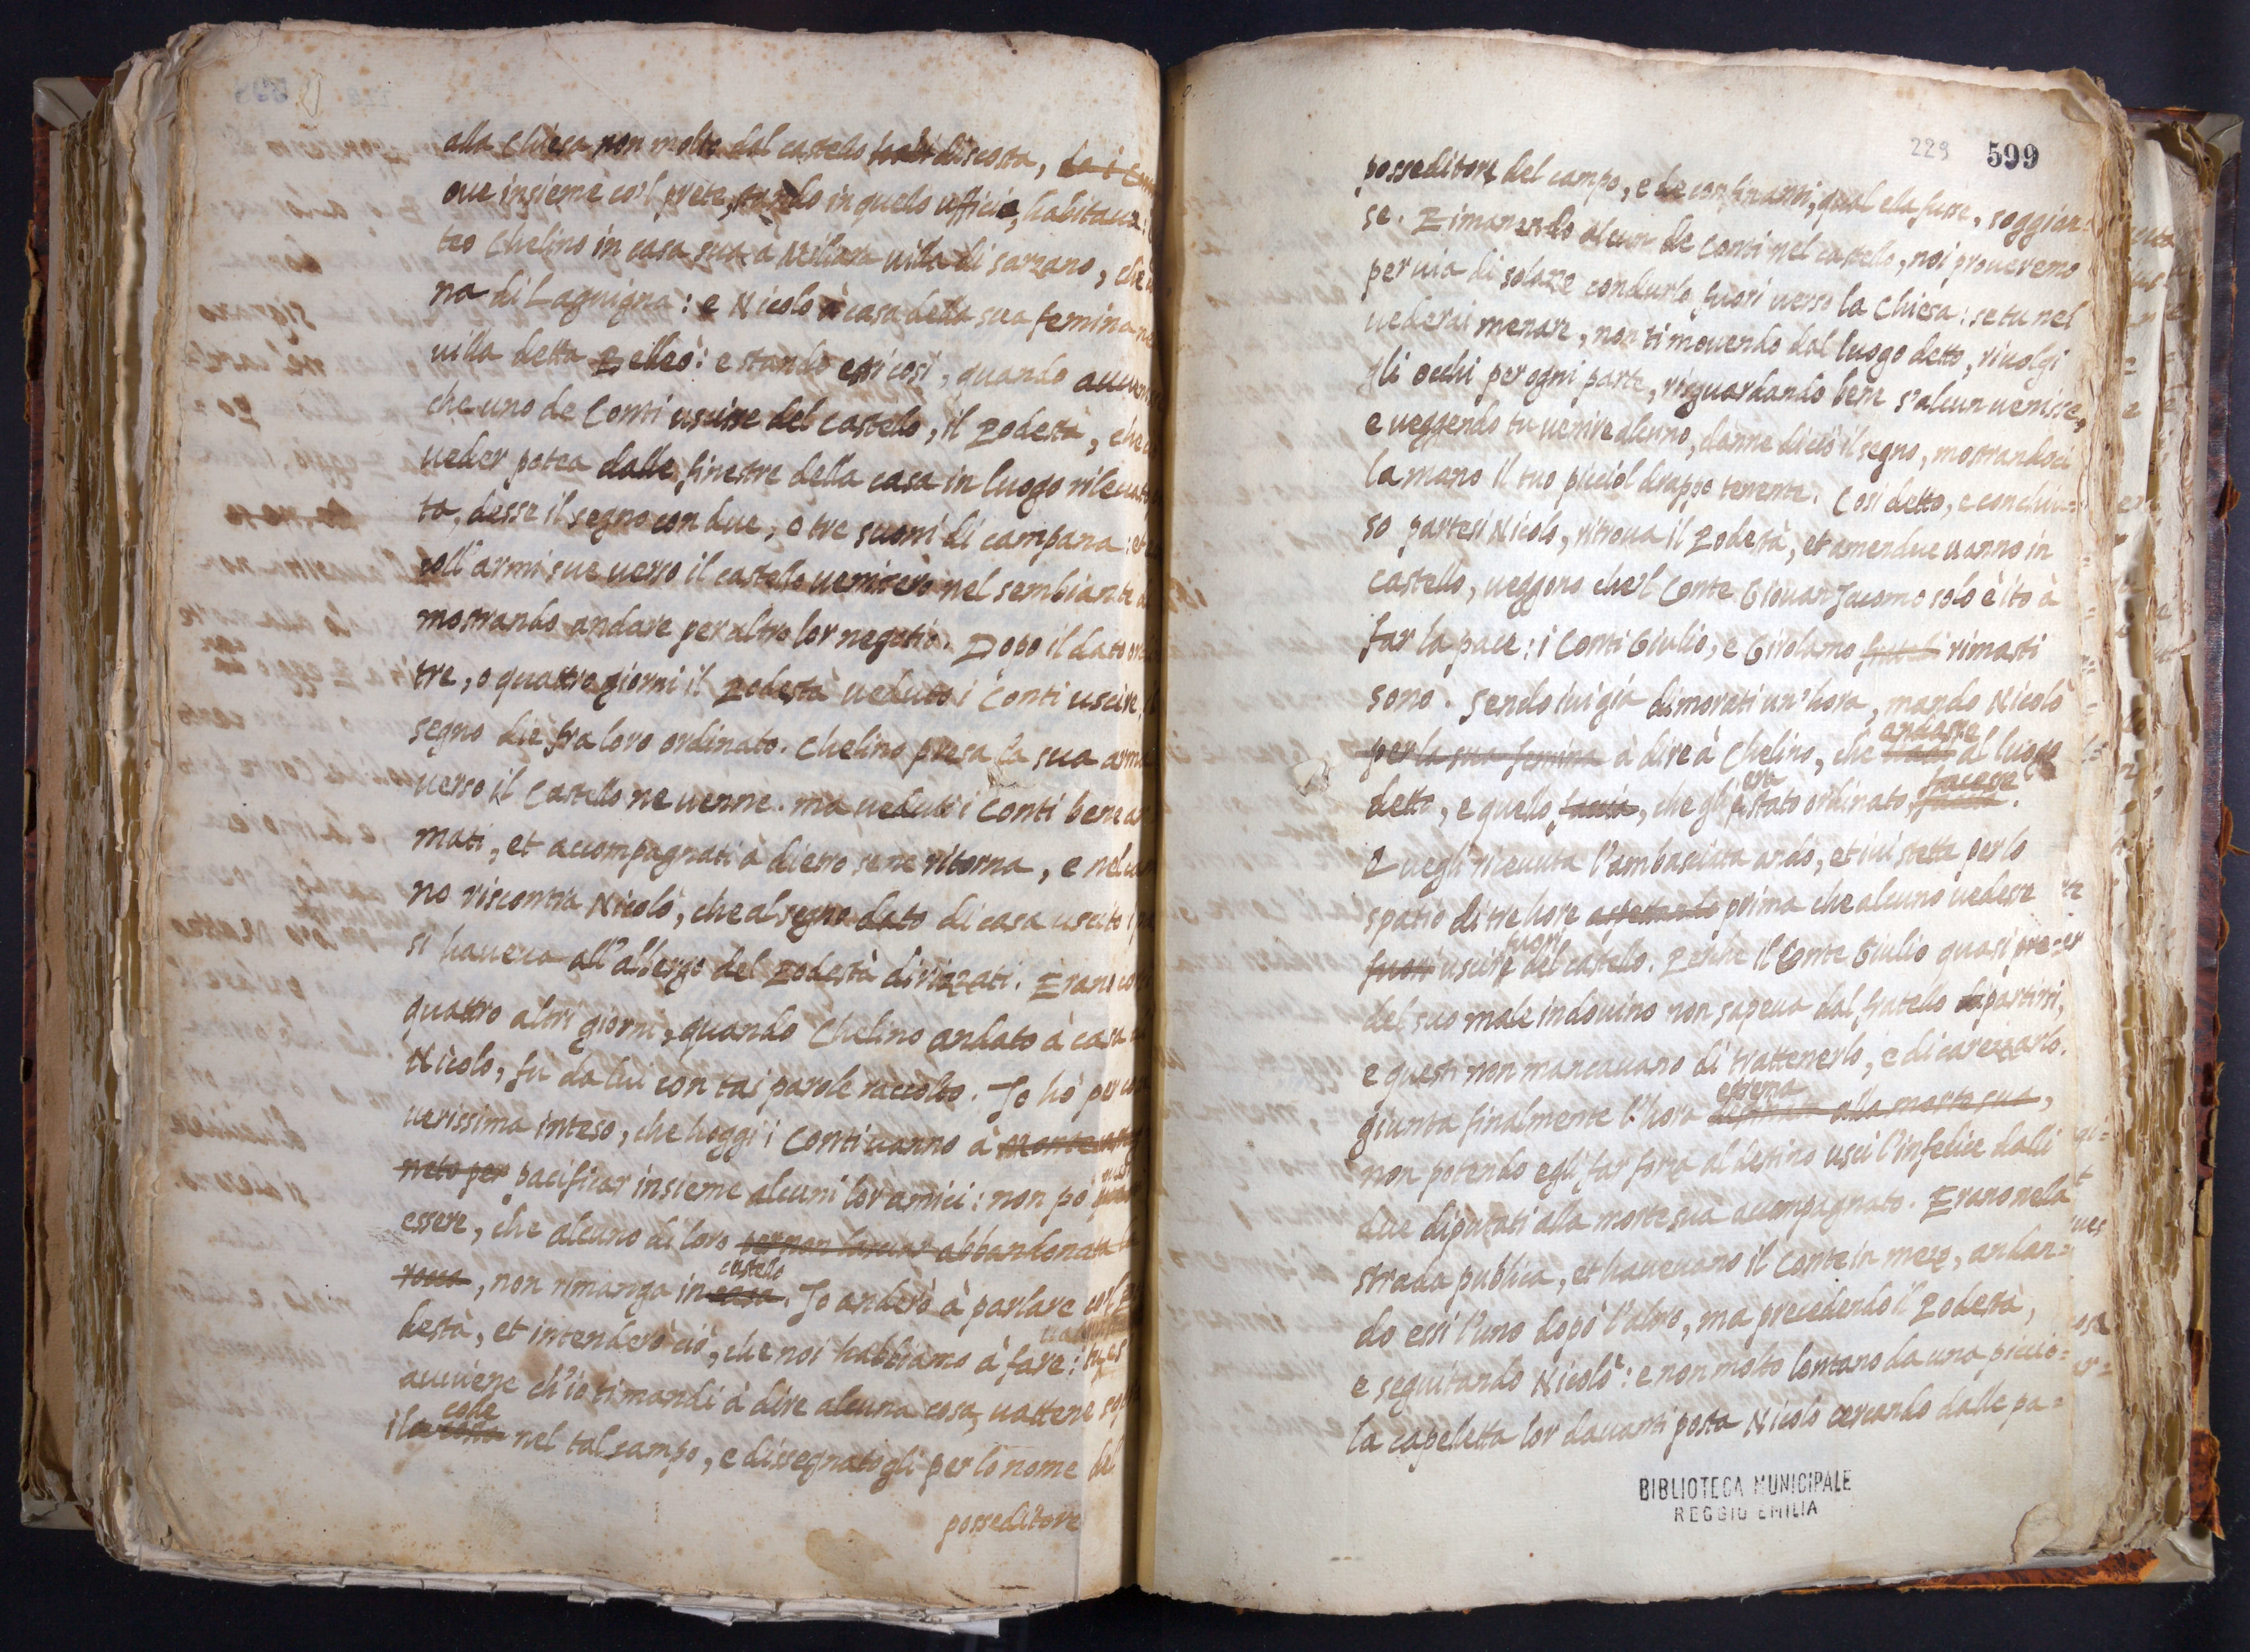 alla chiesa non molto dal castello discosta,
oue insieme co'l prete, stando in quello ufficio, habitaua:
teo Chelino in casa sua à Miliara uilla di sarzano, che
na di Laguigna: e Nicolo à casa della sua femina
uilla detta Belleo: e stando essi così, quando auuenisse
che uno de Conti uscisse del castello, il Podestà, che
ueder potea dalle finestre della casa in luogo rileuato
ta, desse il segno con due, o tre suoni di campana: et
coll'armi sue uerso il castello uenissero nel sembiante
mostrando andare per altro lor negotio. Dopo il dato
tre, o quattro giorni il Podestà ueduto i Conti uscire,
segno die fra loro ordinato. Chelino presa la sua arma
uerso il Castello ne uenne. ma ueduti i Conti bene ar
mati, et accompagnati à dietro se ne ritorna, e nel
no riscontra Nicolò, che al segno dato di casa uscito
si haueua all'albergo del Podestà dirizzati. Erano
quattro altri giorni, quando Chelino andato à casa
Nicolo, fù da lui con tai parole raccolto. Io hò per
uerissima inteso, che hoggi i Conti uanno à Monte
neto per pacificar insieme alcuni lor amici: non pò
essere, che alcuno di loro per non lasciar abbandonata
rocca, non rimanga in casa castello. Io anderò à parlare co'l Po
destà, et intenderò ciò, che noi habbiamo à fare:
auuiene ch'io ti mandi à dire alcuna cosa, uattene
il code nel tal campo, e dissegnatogli per lo nome del
posseditore
229 599
posseditore del campo, e de confinanti, qual ela fusse, soggiun=
se. Rimanendo alcun de Conti nel castello, noi proueremo
per uia di solaze condurlo fuori uerso la Chiesa: se tu nel
uederai menare, non ti mouendo dal luogo detto, riuolgi
gli occhi per ogni parte, risguardando bene s'alcun uenisse,
e ueggendo tu uenire alcuno, danne di ciò il segno, mostrandoci
la mano il tuo picciol drappo tenente. Così detto, e conchiu=
so partesi Nicolo, ritroua il Podestà, et amendue uanno in
castello, ueggono che'l Conte Giouan Jacomo solo è ito à
far la pace: i Conti Giulio, e Girolamo rimasti
sono. Sendo iui già dimorati un'hora, mando Nicolò
per la sua femina à dire à Chelino, che andasse al luogo
detto, e quello faccia, che gli era stato ordinato facesse.
Quegli riceuuta l'ambasciata andò, et iui stette per lo
spatio di tre hore aspettando prima che alcuno uedesse
fuori uscire fuori del castello. Perche il Conte Giulio quasi pre=
del suo male indouino non sapeua dal fratello dipartirsi,
e questi non mancauano di trattenerlo, e di carezzarlo.
giunta finalmente l'hora estrema alla morte sua,
non potendo egli far forza al destino uscì l'infelice dalli
due diputati alla morte sua accompagnato. Erano nela
strada publica, et haueuano il Conte in mezo, andan=
do essi l'uno dopò l'altro, ma precedendo il Podestà,
e seguitando Nicolò: e non molto lontano da una piccio=
la capeletta lor dauanti posta Nicolò cercando dalle pa=
BIBLIOTECA MUNICIPALE
REGGIO EMILIA